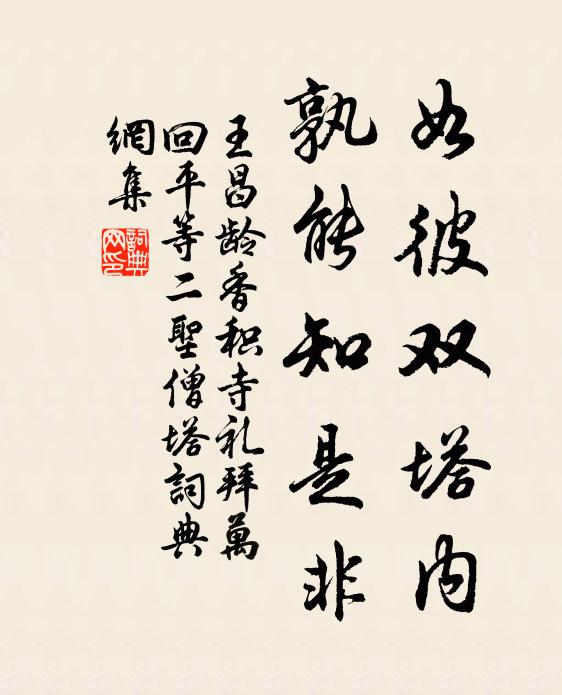 如彼双塔内
孰能知是非
王昌龄香积寺礼拜萬
回平等二聖僧塔詞典
網集
詞典网印